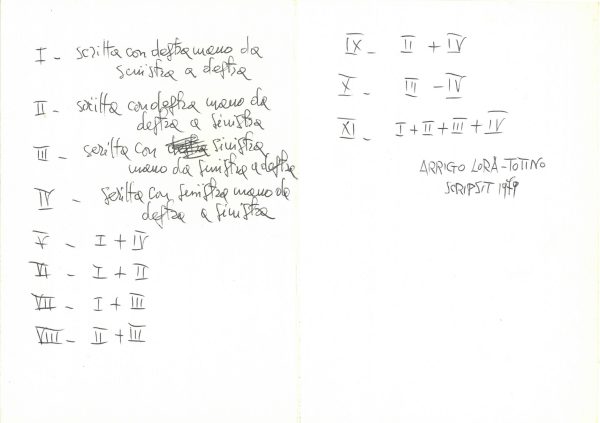 I - scritta con destra mano da
sinistra a destra
II - scritta con destra mano da
destra a sinistra
III - scritta con sinistra
mano da sinistra a destra
IV - scritta con sinistra mano da
destra a sinistra
V - I + IV
VI - I + II
VII - I + III
VIII - II + III
IX - II + IV
X - III - IV
XI - I + II + III + IV
ARRIGO LORA-TOTINO
SCRIPSIT 1979